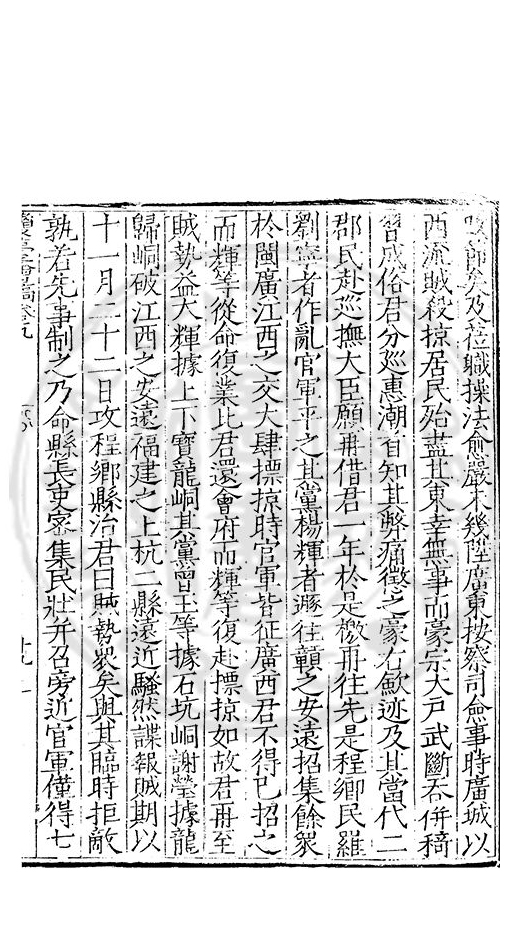 節矣及蒞職操法愈嚴未幾陞廣東按察司僉事時廣城以
西流賊殺掠居民殆盡其東幸無事而豪宗大戶武斷吞併稔
習成俗君分巡惠潮有知其弊痛徵之豪右歛迹及其當代二
郡民赴巡撫大臣願冊借君一年於是檄冊往先是程鄉民羅
劉寧者作亂官軍平之其黨楊輝者遯往贛之安遠招集餘衆
於閩廣江西之交大肆摽掠時官軍皆征廣西君不得已招之
而輝等從命復業比君還會府而輝等復赴摽掠如故君冊至
賊勢益大輝據上下寶龍峒其黨曾玉等據石坑峒謝瑩據龍
歸峒破江西之安遠福建之上杭二縣遠近騷然諜報賊期以
十一月二十二日攻程鄉縣冶君曰賊勢衆矣與其臨時拒敵
孰若先事制之乃命縣長吏密集民壯并召旁近官軍僅得七